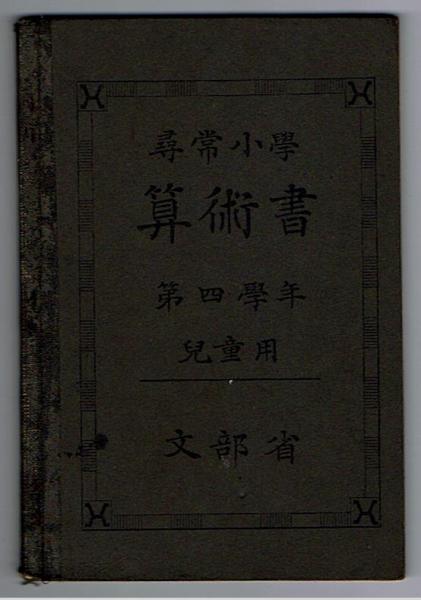 尋常小學
算術書
第四學年
兒童用
文部省